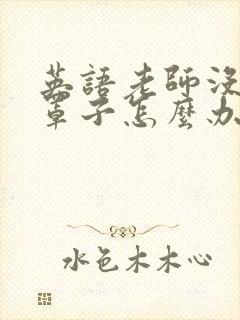 英語老師沒
罩子怎麼办
水色木木心